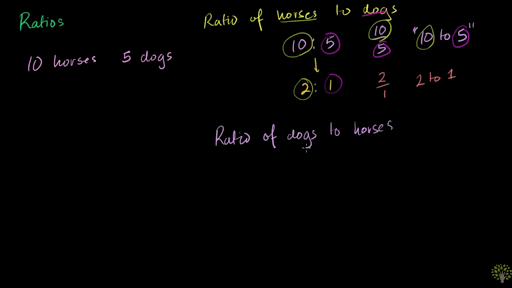 Ratios
10 horses 5 dogs
Ratio of horses to dogs
10 : 5 10/5 "10 to 5"
2 : 1 2/1 2 to 1
Ratio of dogs to horses